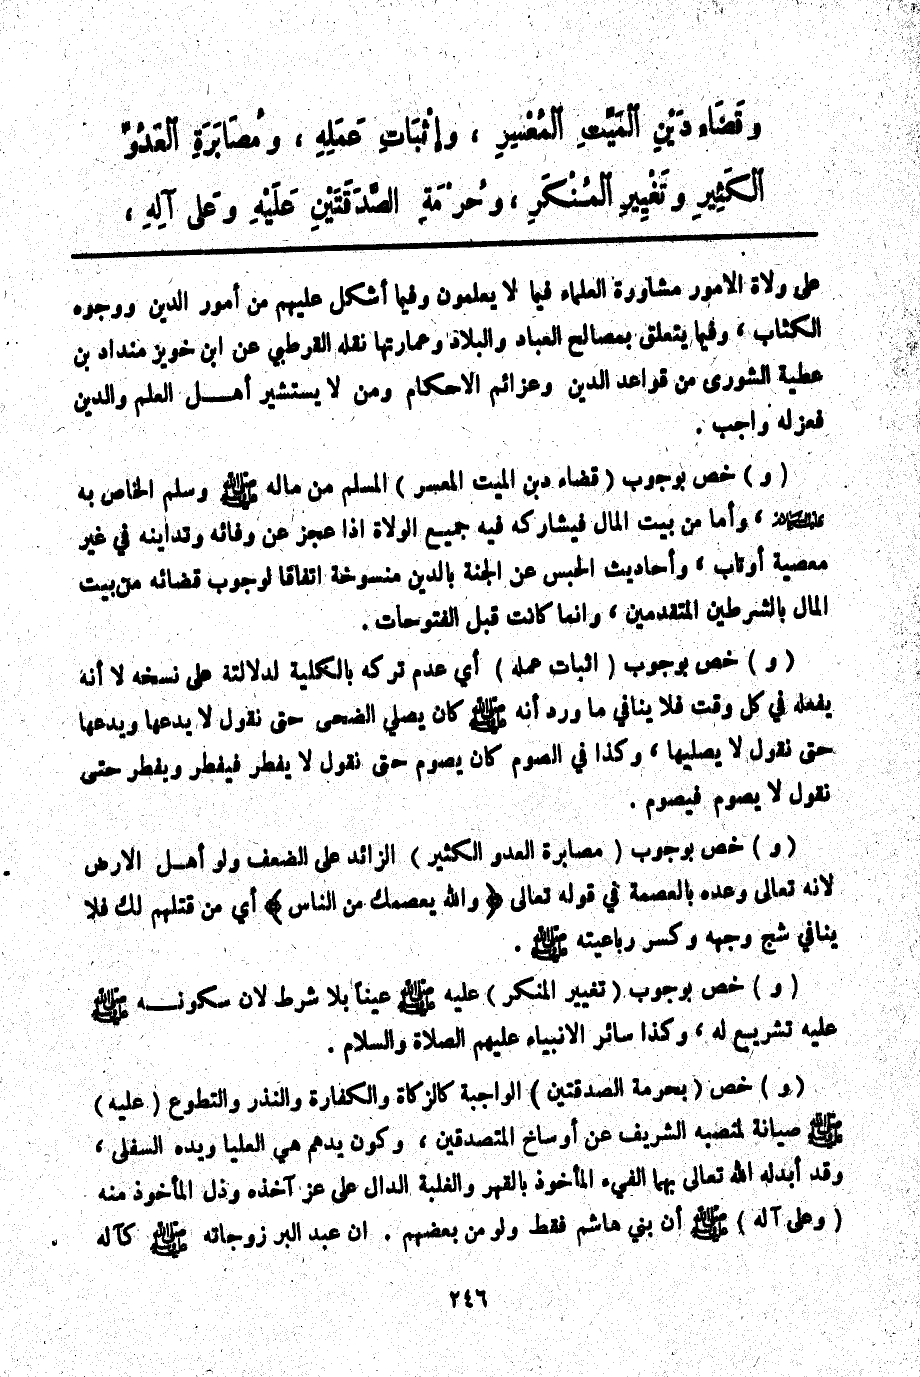 وَقَضَاء دَيْنِ ٱلْمَيِّتِ ٱلْمُعْسِرِ ، وإثْبَاتِ عَمَلِهِ ، وَمُصَابَرَةِ ٱلْعَدُوِّ
ٱلْكَثِيرِ وتَغْيِيرِ ٱلْمُنْكَرِ ، وحُرْمَةِ الصَّدَقَتَيْنِ عَلَيْهِ وَعَلى آلِهِ ،
على ولاة الامور مشاورة العلماء فيما لا يعلمون وفيما أشكل عليهم من أمور الدين ووجوه
الكتاب ، وفيما يتعلق بمصالح العباد والبلاد وعمارتها نقله القرطبي عن ابن خويز منداد بن
عطية الشورى من قواعد الدين وعزائم الاحكام ومن لا يستشير أهــل العلم والدين
فعزله واجب .
( و ) خص بوجوب ( قضاء دين الميت المعسر ) المسلم من ماله ﷺ وسلم الخاص به
عليه السلام ، وأما من بيت المال فيشاركه فيه جميع الولاة اذا عجز عن وفائه وتداينه في غير
معصية أوتاب ، وأحاديث الحبس عن الجنة بالدين منسوخة اتفاقا لوجوب قضائه من بيت
المال بالشرطين المتقدمين ، وانما كانت قبل الفتوحات .
( و ) خص بوجوب ( اثبات عمله ) أي عدم تركه بالكلية لدلالتة على نسخه لا أنه
يفعله في كل وقت فلا ينافي ما ورد أنه ﷺ كان يصلي الضحى حتى نقول لا يدعها ويدعها
حتى نقول لا يصليها ، وكذا في الصوم كان يصوم حتى نقول لا يفطر فيفطر ويفطر حتى
نقول لا يصوم فيصوم .
( و ) خص بوجوب ( مصابرة العدو الكثير ) الزائد على الضعف ولو أهــل الارض
لانه تعالى وعده بالعصمة في قوله تعالى ﴿ والله يعصمك من الناس ﴾ أي من قتلهم لك فلا
ينافي شج وجهه وكسر رباعيته ﷺ .
( و ) خص بوجوب ( تغيير المنكر ) عليه ﷺ عيناً بلا شرط لان سكوتــه ﷺ
عليه تشريع له ، وكذا سائر الانبياء عليهم الصلاة والسلام .
( و ) خص ( بحرمة الصدقتين ) الواجبة كالزكاة والكفارة والنذر والتطوع ( عليه )
ﷺ صيانة لمنصبه الشريف عن أوساخ المتصدقين ، وكون يدهم هي العليا ويده السفلى ،
وقد أبدله الله تعالى بهما الفيء المأخوذ بالقهر والغلبة الدال على عز آخذه وذل المأخوذ منه
( وعلى آله ) ﷺ أن بني هاشم فقط ولو من بعضهم . ان عبد البر زوجاته ﷺ كآله
٢٤٦